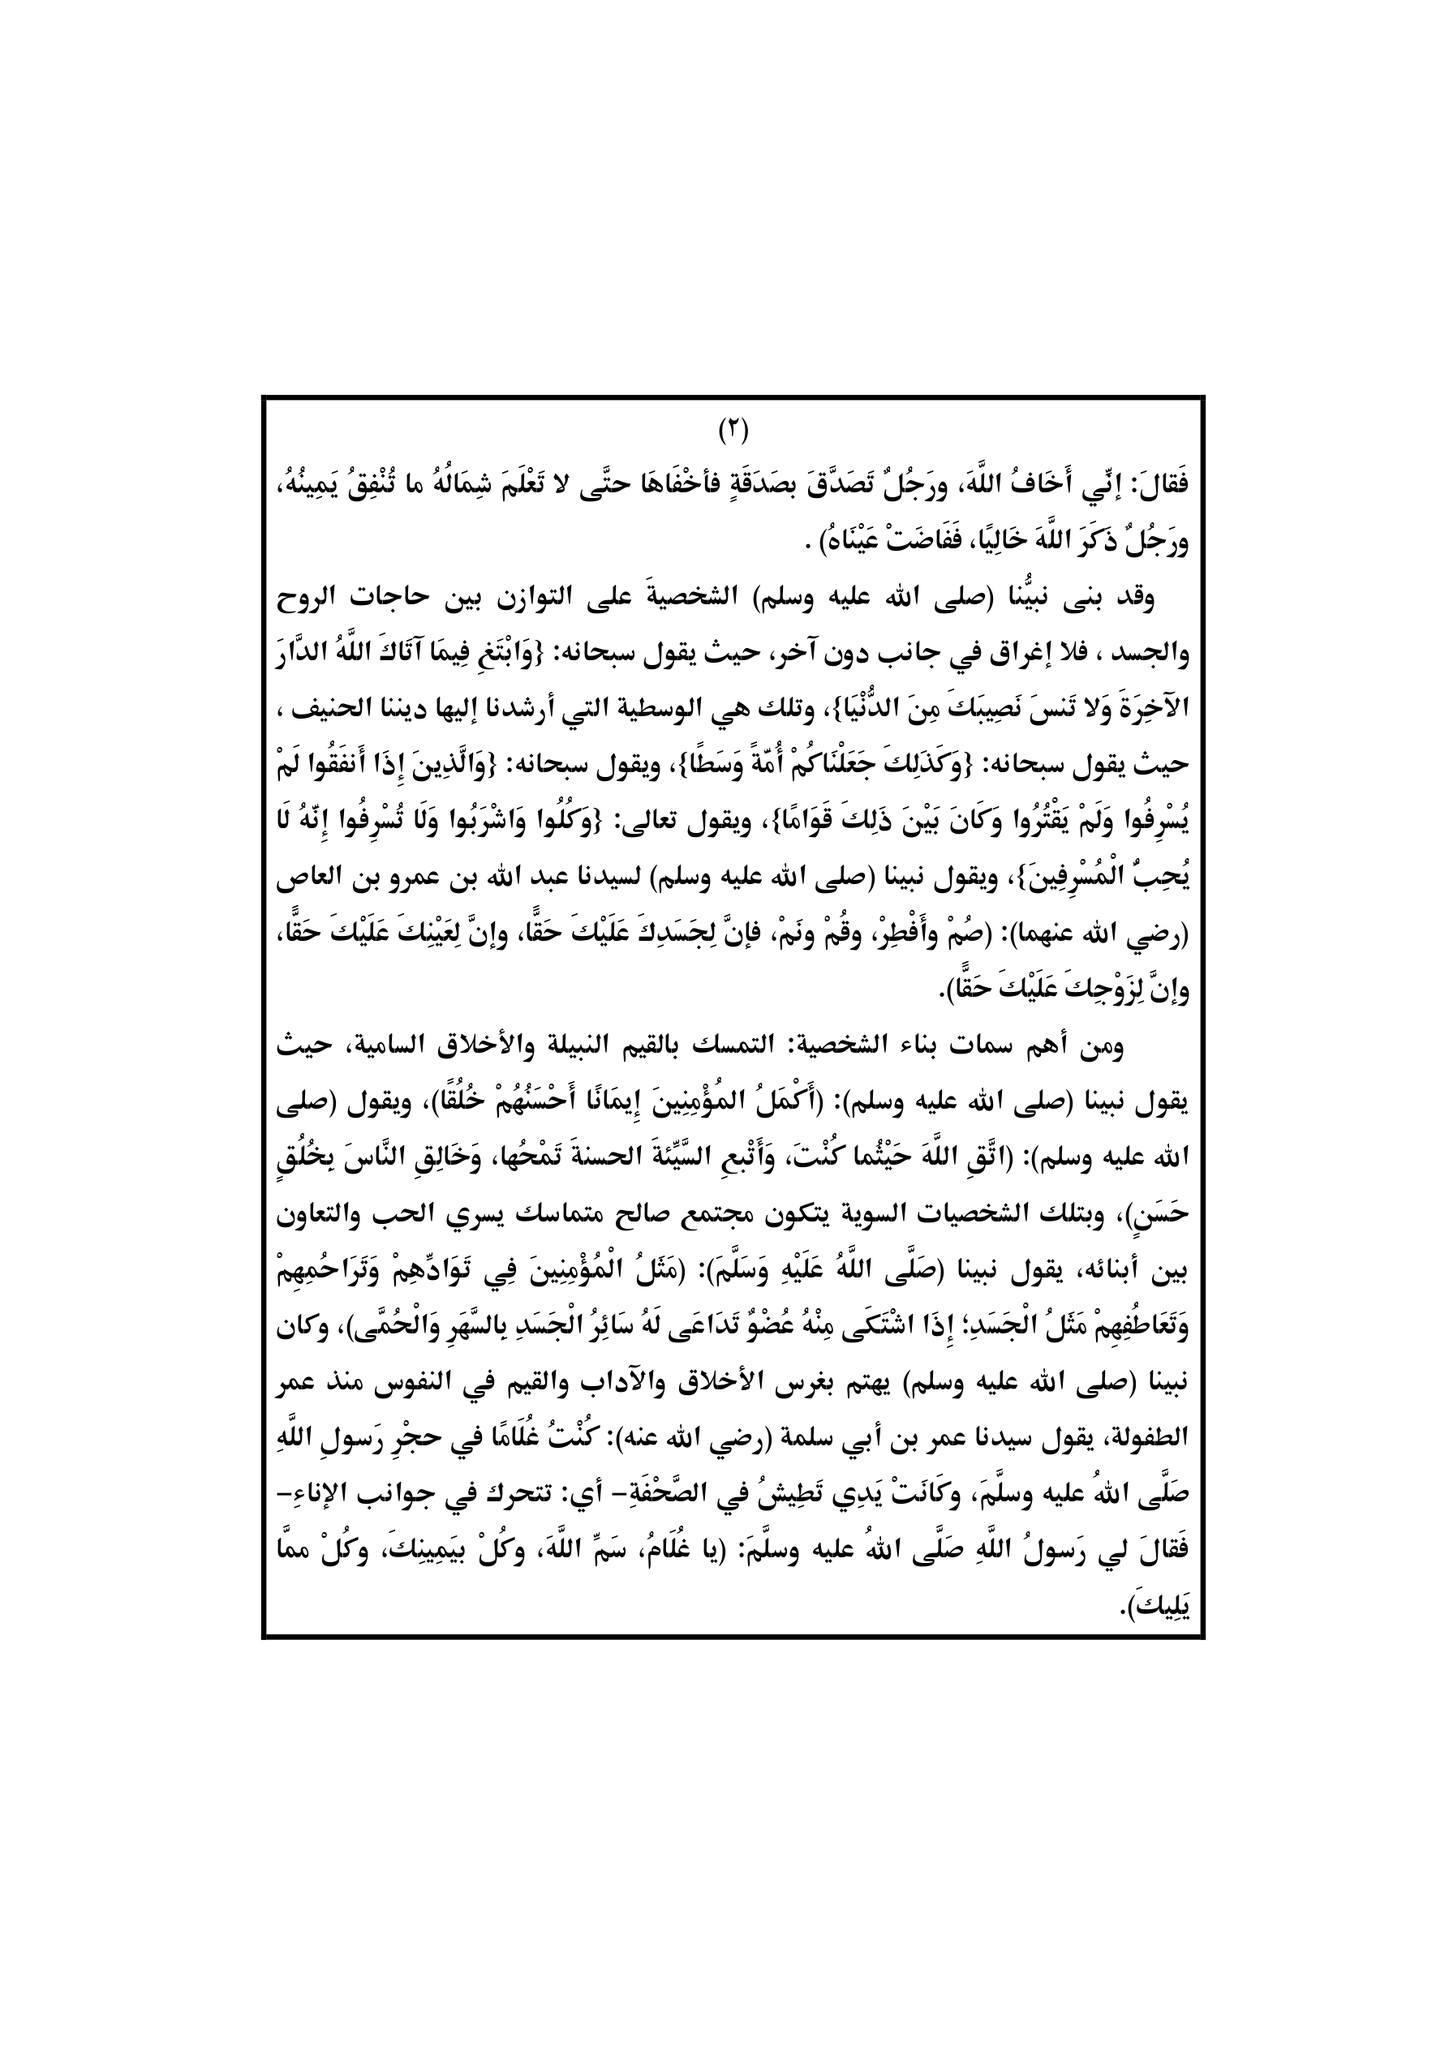 (٢)
فَقالَ: إنِّي أَخَافُ اللَّهَ، ورَجُلٌ تَصَدَّقَ بصَدَقَةٍ فأخْفَاهَا حتَّى لا تَعْلَمَ شِمَالُهُ ما تُنْفِقُ يَمِينُهُ،
ورَجُلٌ ذَكَرَ اللَّهَ خَالِيًا، فَفَاضَتْ عَيْنَاهُ) .
وقد بنى نبيُّنا (صلى الله عليه وسلم) الشخصيةَ على التوازن بين حاجات الروح
والجسد ، فلا إغراق في جانب دون آخر، حيث يقول سبحانه: {وَابْتَغِ فِيمَا آتَاكَ اللَّهُ الدَّارَ
الآخِرَةَ وَلا تَنسَ نَصِيبَكَ مِنَ الدُّنْيَا}، وتلك هي الوسطية التي أرشدنا إليها ديننا الحنيف ،
حيث يقول سبحانه: {وَكَذَلِكَ جَعَلْنَاكُمْ أُمّةً وَسَطًا}، ويقول سبحانه: {وَالَّذِينَ إِذَا أَنفَقُوا لَمْ
يُسْرِفُوا وَلَمْ يَقْتُرُوا وَكَانَ بَيْنَ ذَلِكَ قَوَامًا}، ويقول تعالى: {وَكُلُوا وَاشْرَبُوا وَلَا تُسْرِفُوا إِنّهُ لَا
يُحِبُّ الْمُسْرِفِينَ}، ويقول نبينا (صلى الله عليه وسلم) لسيدنا عبد الله بن عمرو بن العاص
(رضي الله عنهما): (صُمْ وأَفْطِرْ، وقُمْ ونَمْ، فإنَّ لِجَسَدِكَ عَلَيْكَ حَقًّا، وإنَّ لِعَيْنِكَ عَلَيْكَ حَقًّا،
وإنَّ لِزَوْجِكَ عَلَيْكَ حَقًّا).
ومن أهم سمات بناء الشخصية: التمسك بالقيم النبيلة والأخلاق السامية، حيث
يقول نبينا (صلى الله عليه وسلم): (أَكْمَلُ المُؤْمِنِينَ إِيمَانًا أَحْسَنُهُمْ خُلُقًا)، ويقول (صلى
الله عليه وسلم): (اتَّقِ اللَّهَ حَيْثُما كُنْتَ، وَأَتْبعِ السَّيِّئةَ الحسنةَ تَمْحُها، وَخَالِقِ النَّاسَ بِخُلُقٍ
حَسَنٍ)، وبتلك الشخصيات السوية يتكون مجتمع صالح متماسك يسري الحب والتعاون
بين أبنائه، يقول نبينا (صَلَّى اللَّهُ عَلَيْهِ وَسَلَّمَ): (مَثَلُ الْمُؤْمِنِينَ فِي تَوَادِّهِمْ وَتَرَاحُمِهِمْ
وَتَعَاطُفِهِمْ مَثَلُ الْجَسَدِ؛ إِذَا اشْتَكَى مِنْهُ عُضْوٌ تَدَاعَى لَهُ سَائِرُ الْجَسَدِ بِالسَّهَرِ وَالْحُمَّى)، وكان
نبينا (صلى الله عليه وسلم) يهتم بغرس الأخلاق والآداب والقيم في النفوس منذ عمر
الطفولة، يقول سيدنا عمر بن أبي سلمة (رضي الله عنه): كُنْتُ غُلَامًا في حجْرِ رَسولِ اللَّهِ
صَلَّى اللهُ عليه وسلَّمَ، وكَانَتْ يَدِي تَطِيشُ في الصَّحْفَةِ– أي: تتحرك في جوانب الإناءِ–
فَقالَ لي رَسولُ اللَّهِ صَلَّى اللهُ عليه وسلَّمَ: (يا غُلَامُ، سَمِّ اللَّهَ، وكُلْ بيَمِينِكَ، وكُلْ ممَّا
يَلِيكَ).